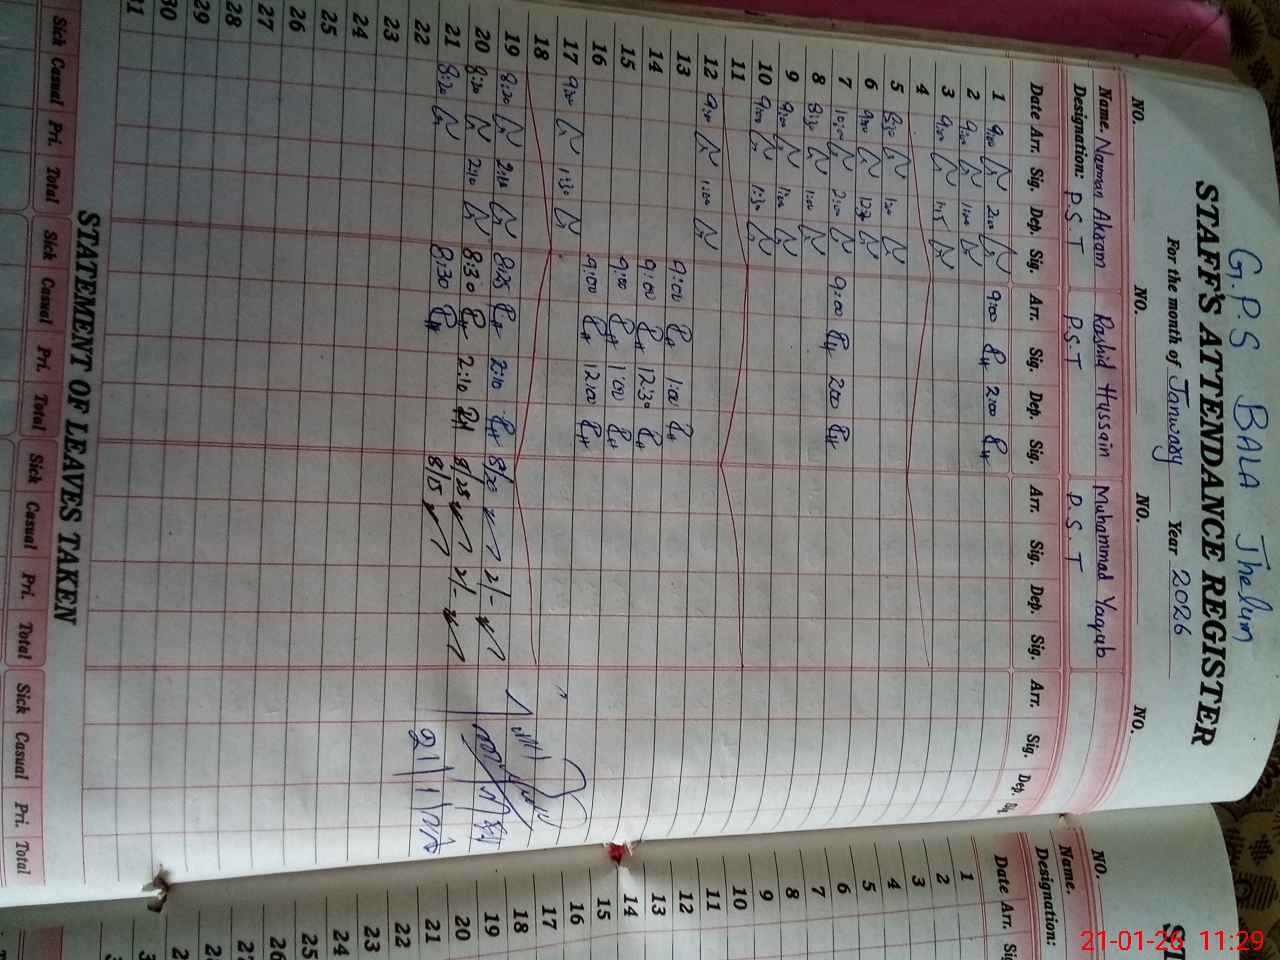 G.P.S BALA Jhelum
STAFF'S ATTENDANCE REGISTER
For the month of January Year 2026
NO. NO. NO. NO.
Name. Naman Akram Rashid Hussain Muhammad Yaqab
Designation: P.S.T P.S.T P.S.T
Date Arr. Sig. Dep. Sig. Arr. Sig. Dep. Sig. Arr. Sig. Dep. Sig. Arr. Sig. Dep.
1 9:00 2:00 9:00 2:00
2 9:00 1:00
3 9:00 1:15
4
5 8:30 1:00
6 9:00 12:30
7 10:00 2:00 9:00 2:00
8 8:30 1:00
9 9:00 1:00
10 9:00 1:30
11
12 9:30 1:00
13 9:00 1:00
14 9:00 12:30
15 9:00 1:00
16 9:00 12:00
17 9:30 1:30
18
19 8:20 2:10 8:25 2:10 8/20 2/-
20 8:30 2:10 8:30 2:10 8/25 2/-
21 8:20 8:30 8/15
22
23
24
25
26
27
28
29
30
31
STATEMENT OF LEAVES TAKEN
Sick Casual Pri. Total Sick Casual Pri. Total Sick Casual Pri. Total Sick Casual Pri. Total
NO.
Name.
Designation:
Date Arr.
1
2
3
4
5
6
7
8
9
10
11
12
13
14
15
16
17
18
19
20
21
22
23
24
25
26
21-01-26 11:29